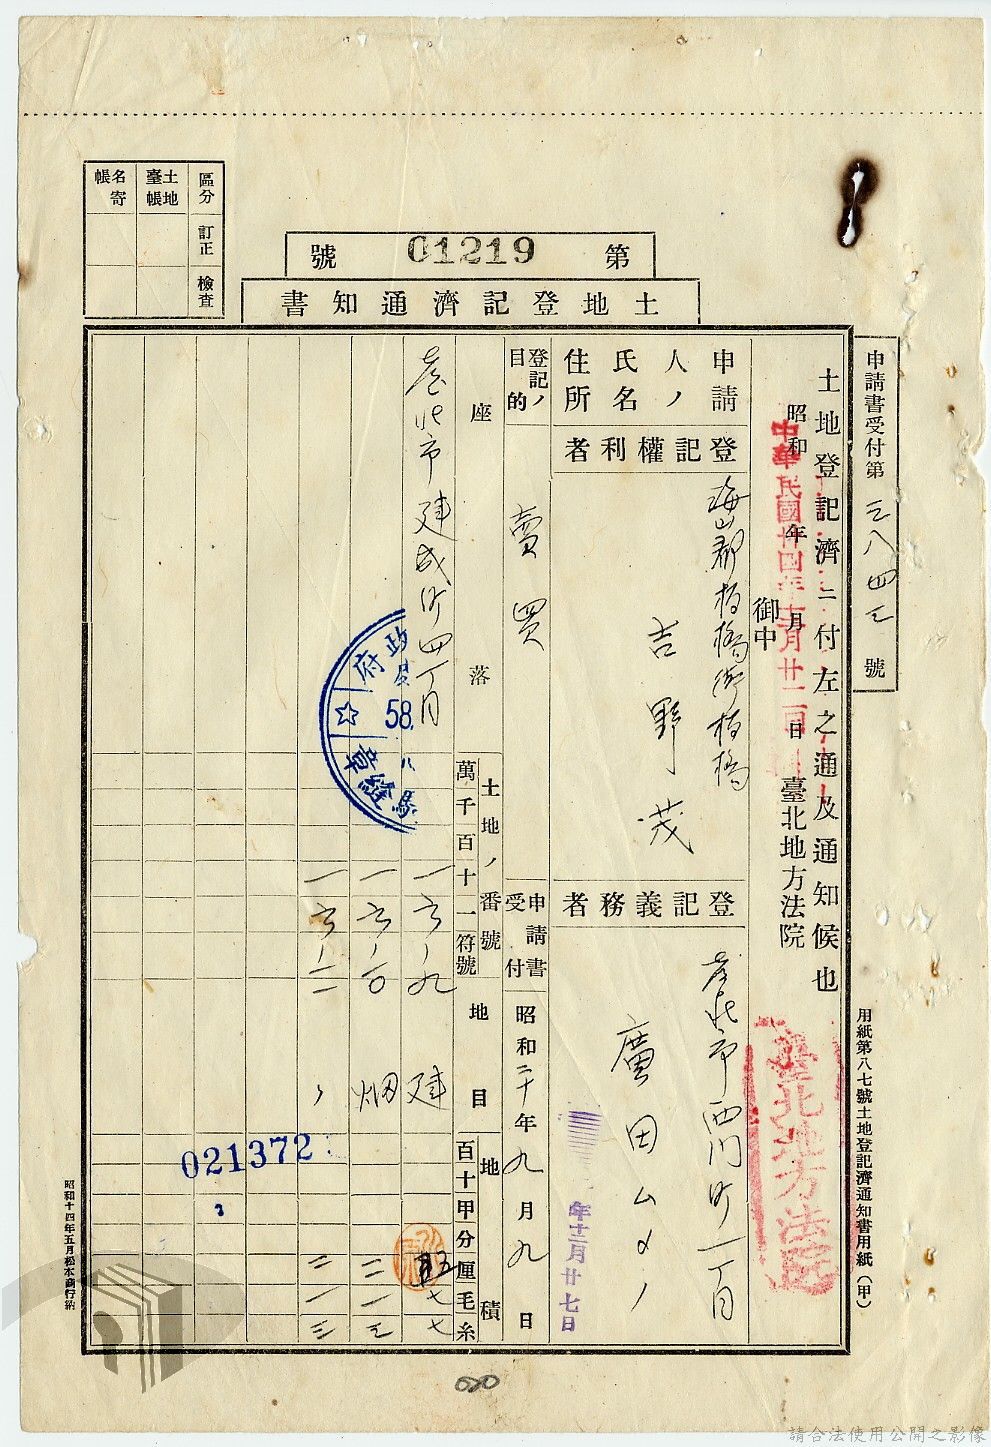 第 01219 號
土地登記濟通知書
區分 訂正 檢查
土地臺帳
名寄帳
申請書受付第 三八四三 號
土地登記濟ニ付左之通及通知候也
昭和 年 月 日
中華民國卅四年十二月廿二日
臺北地方法院
御中
臺北地方法院
申請人ノ氏名住所
登記權利者
海山郡板橋街板橋
吉野茂
登記義務者
臺北市西門町一丁目
廣田ムメノ
年十二月廿七日
登記ノ目的
賣買
申請書受付
昭和二十年九月九日
座落
土地ノ番號
萬千百十一符號
地目
地積
百十甲分厘毛糸
臺北市建成町四丁目
一六ノ九
建
五七七
一六ノ一〇
畑
二一三
一六ノ一一
〃
三一三
府
58.
縫章
021372
用紙第八七號土地登記濟通知書用紙(甲)
昭和十四年五月松本商行納
請合法使用公開之影像